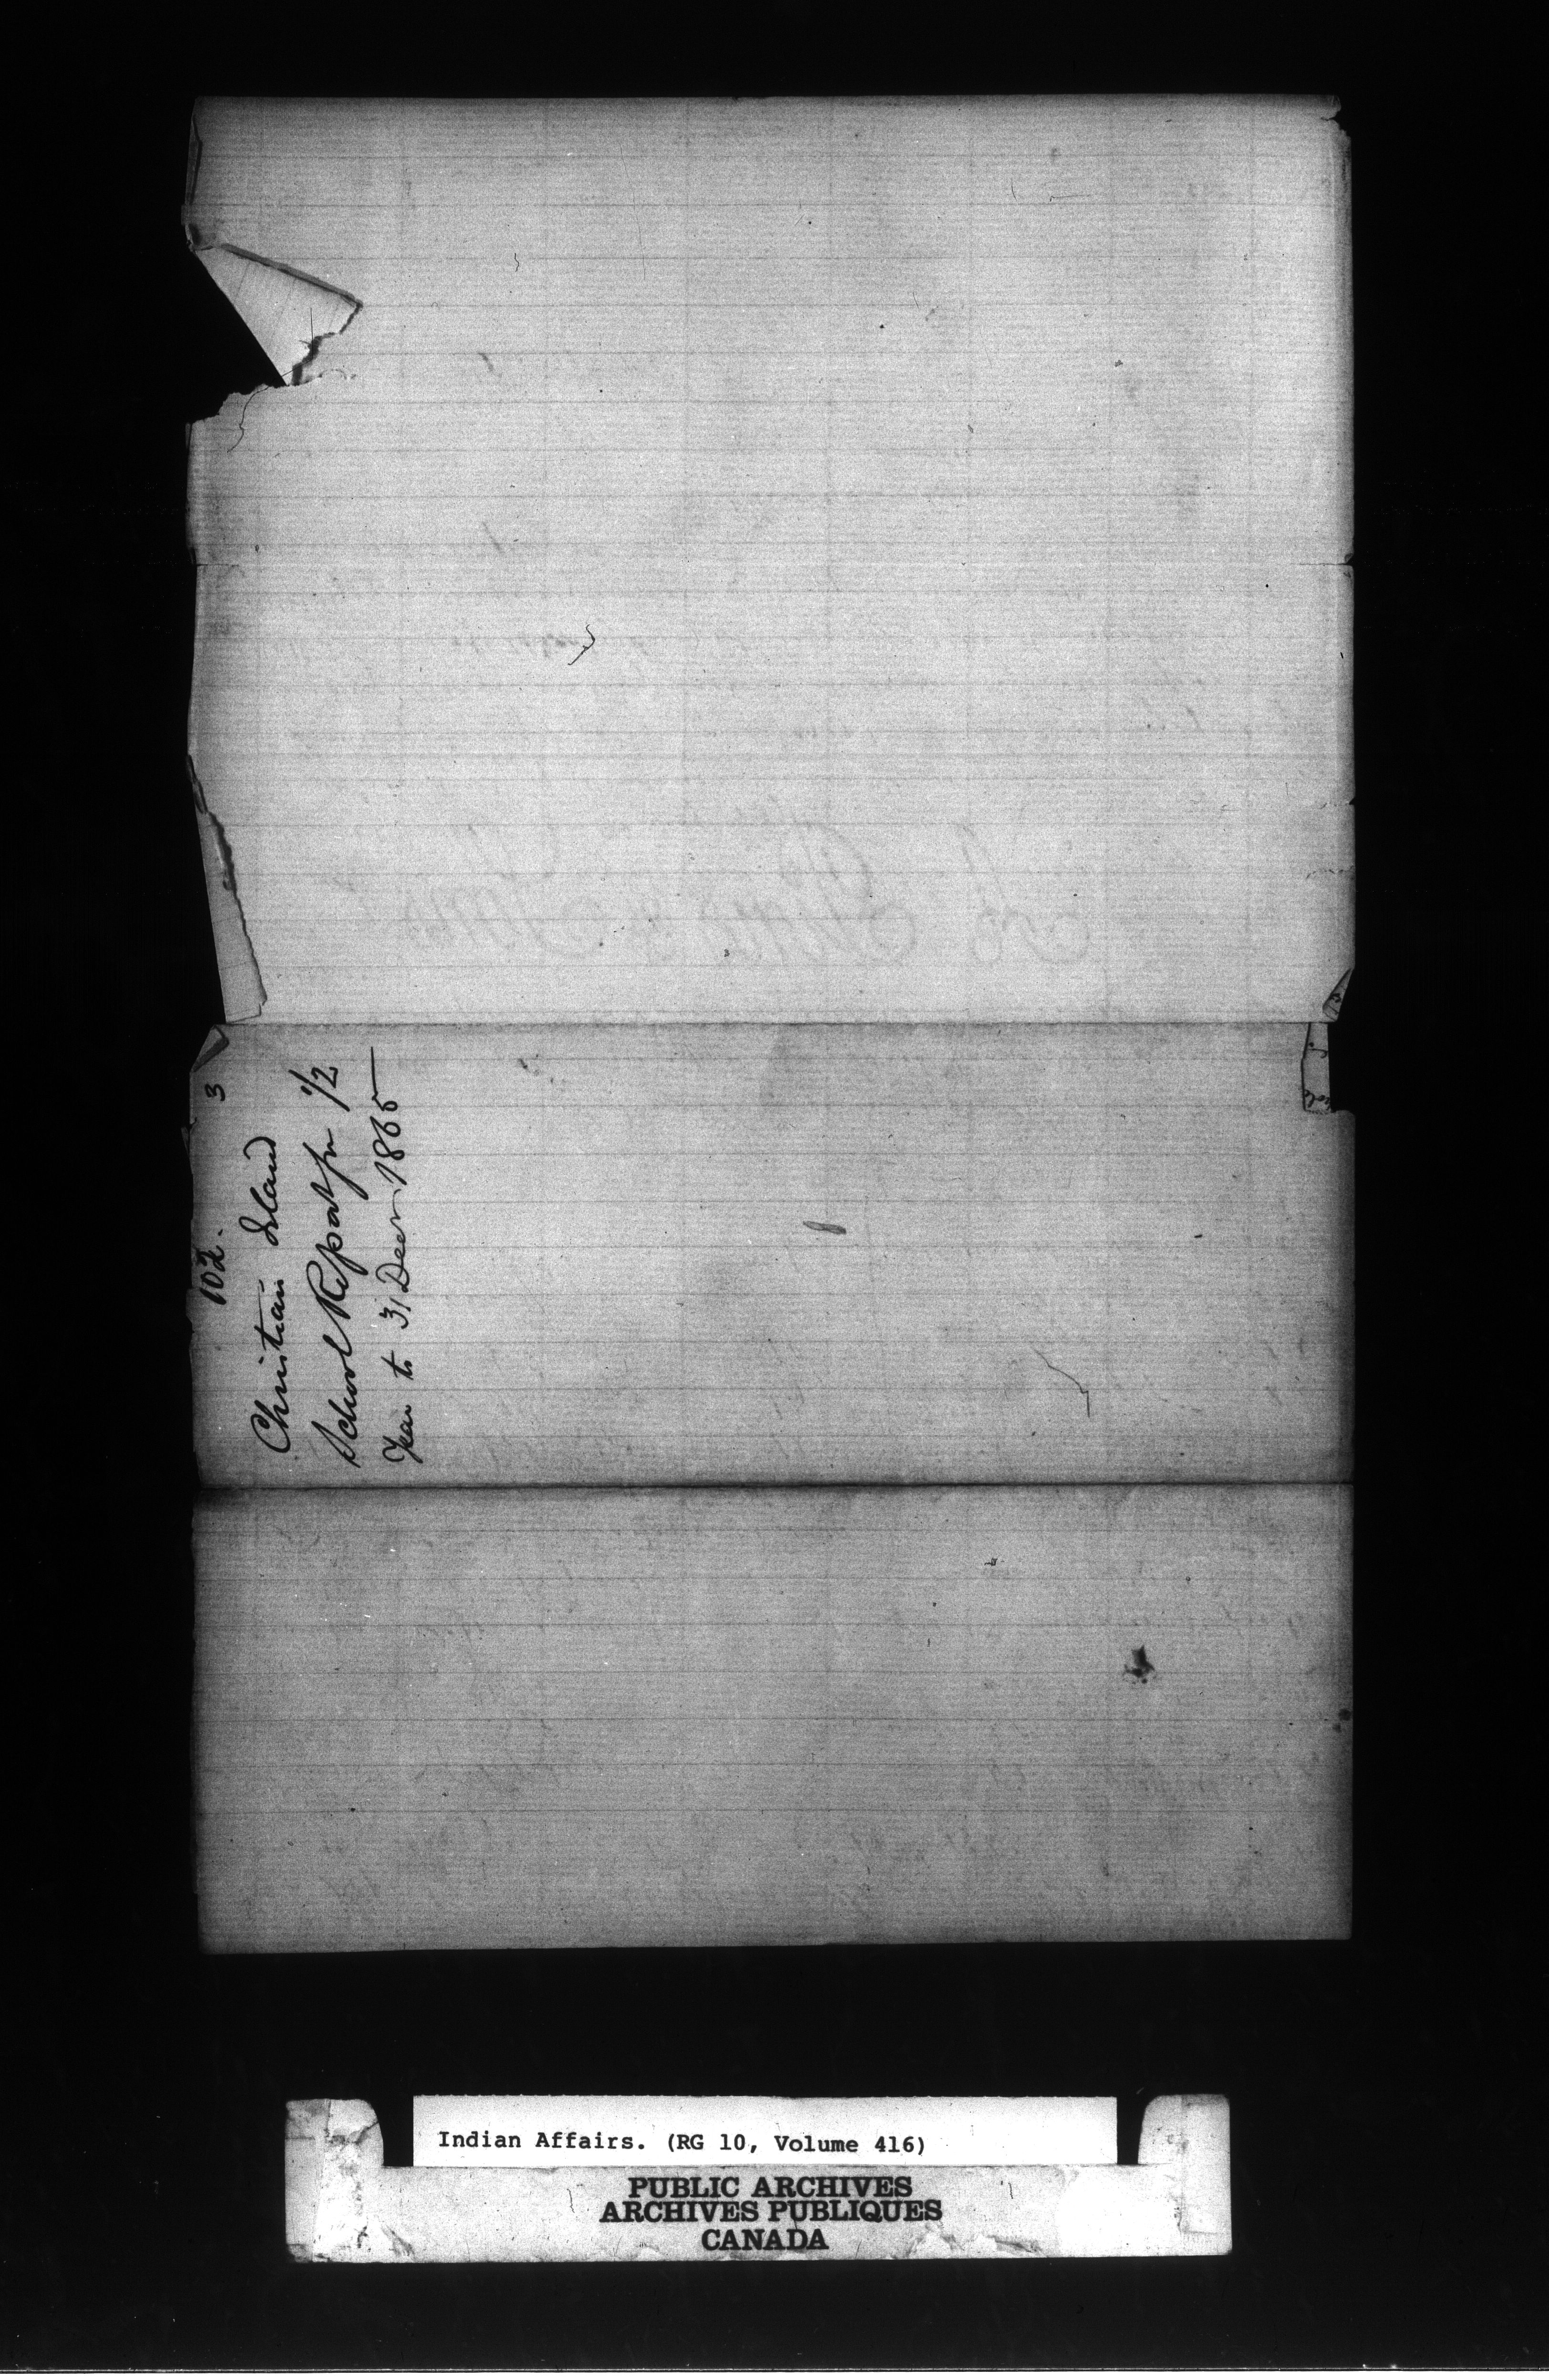 102. 3
Christian Island
School Report for 1/2
Year to 31 Decr 1865
Indian Affairs. (RG 10, Volume 416)
PUBLIC ARCHIVES
ARCHIVES PUBLIQUES
CANADA